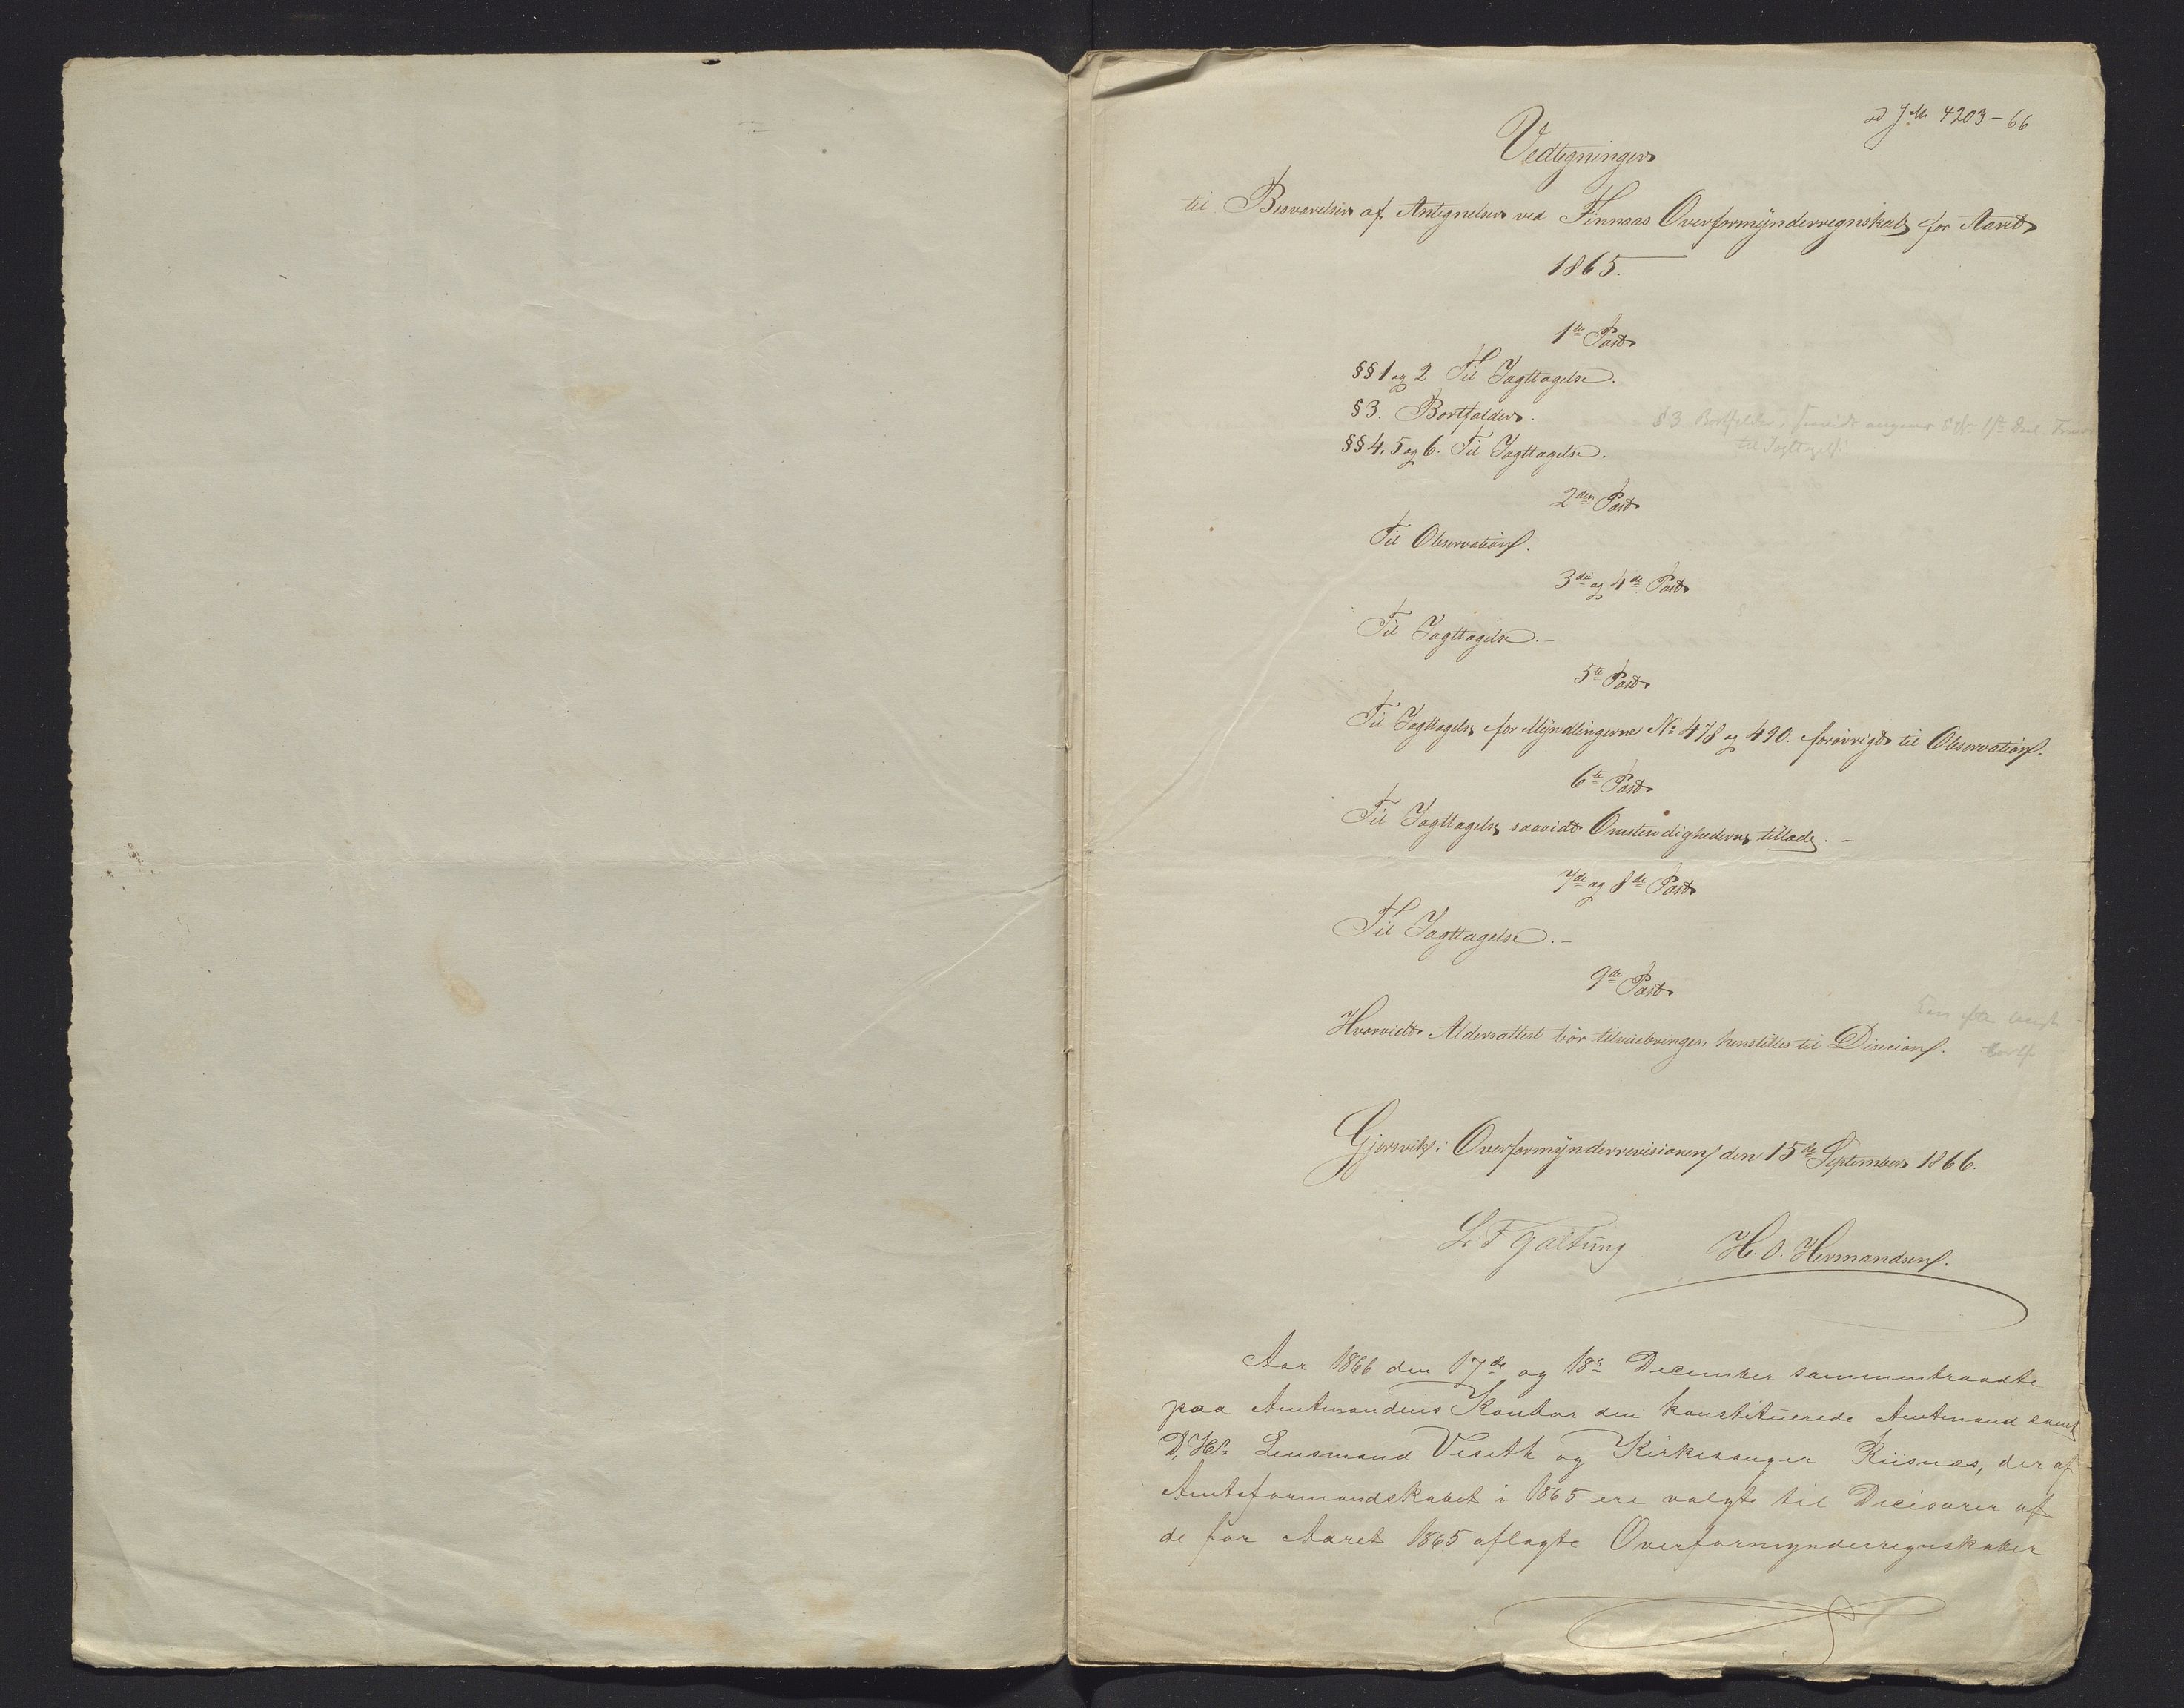 ad J№ 4203-66
Vedtegninger
til Besvarelser af Antegnelser ved Finnaas Overformynderregnskab for Aaret
1865.
1ste Post
§§ 1 og 2 Til Iagttagelse.
§ 3. Bortfalder.
§ 3 Bortfalder,
§§ 4, 5 og 6. Til Iagttagelse.
til Iagttagelse
2den Post
Til Observation.
3die og 4de Post
Til Iagttagelse.-
5te Post
Til Iagttagelse for Myndlingerne № 478 og 490. forövrigt til Observation.
6te Post
Til Iagttagelse saavidt Omstendighederne tillade.-
7de og 8de Post
Til Iagttagelse.-
9de Post
Hvorvidt Aldersattest bör tilveiebringes, henstilles til Decision.
Gjersvik i Overformynderrevisionen den 15de September 1866.
L. F Galtung H. O. Hermandsen.
Aar 1866 den 17de og 18de December sammentraadte
paa Amtmandens Kontor den konstituerede Amtmand samt
D'Hr. Lensmand Veseth og Kirkesanger Riisnæs, der af
Amtsformandskabet i 1865 ere valgte til Decisorer af
de for Aaret 1865 aflagte Overformynderregnskaber